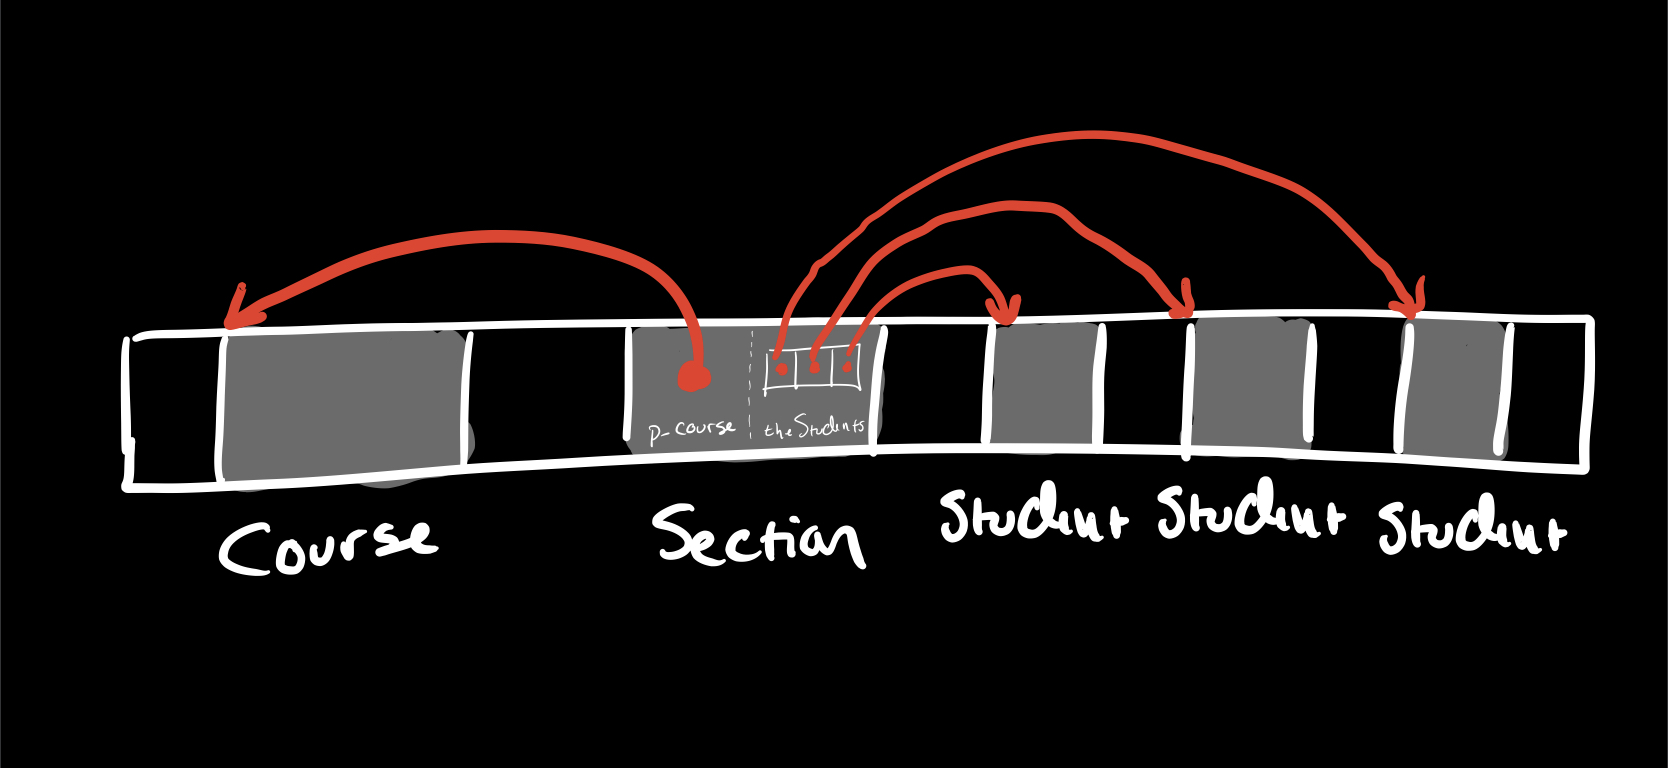 p-course
the Students
Course
Section
Student
Student
Student